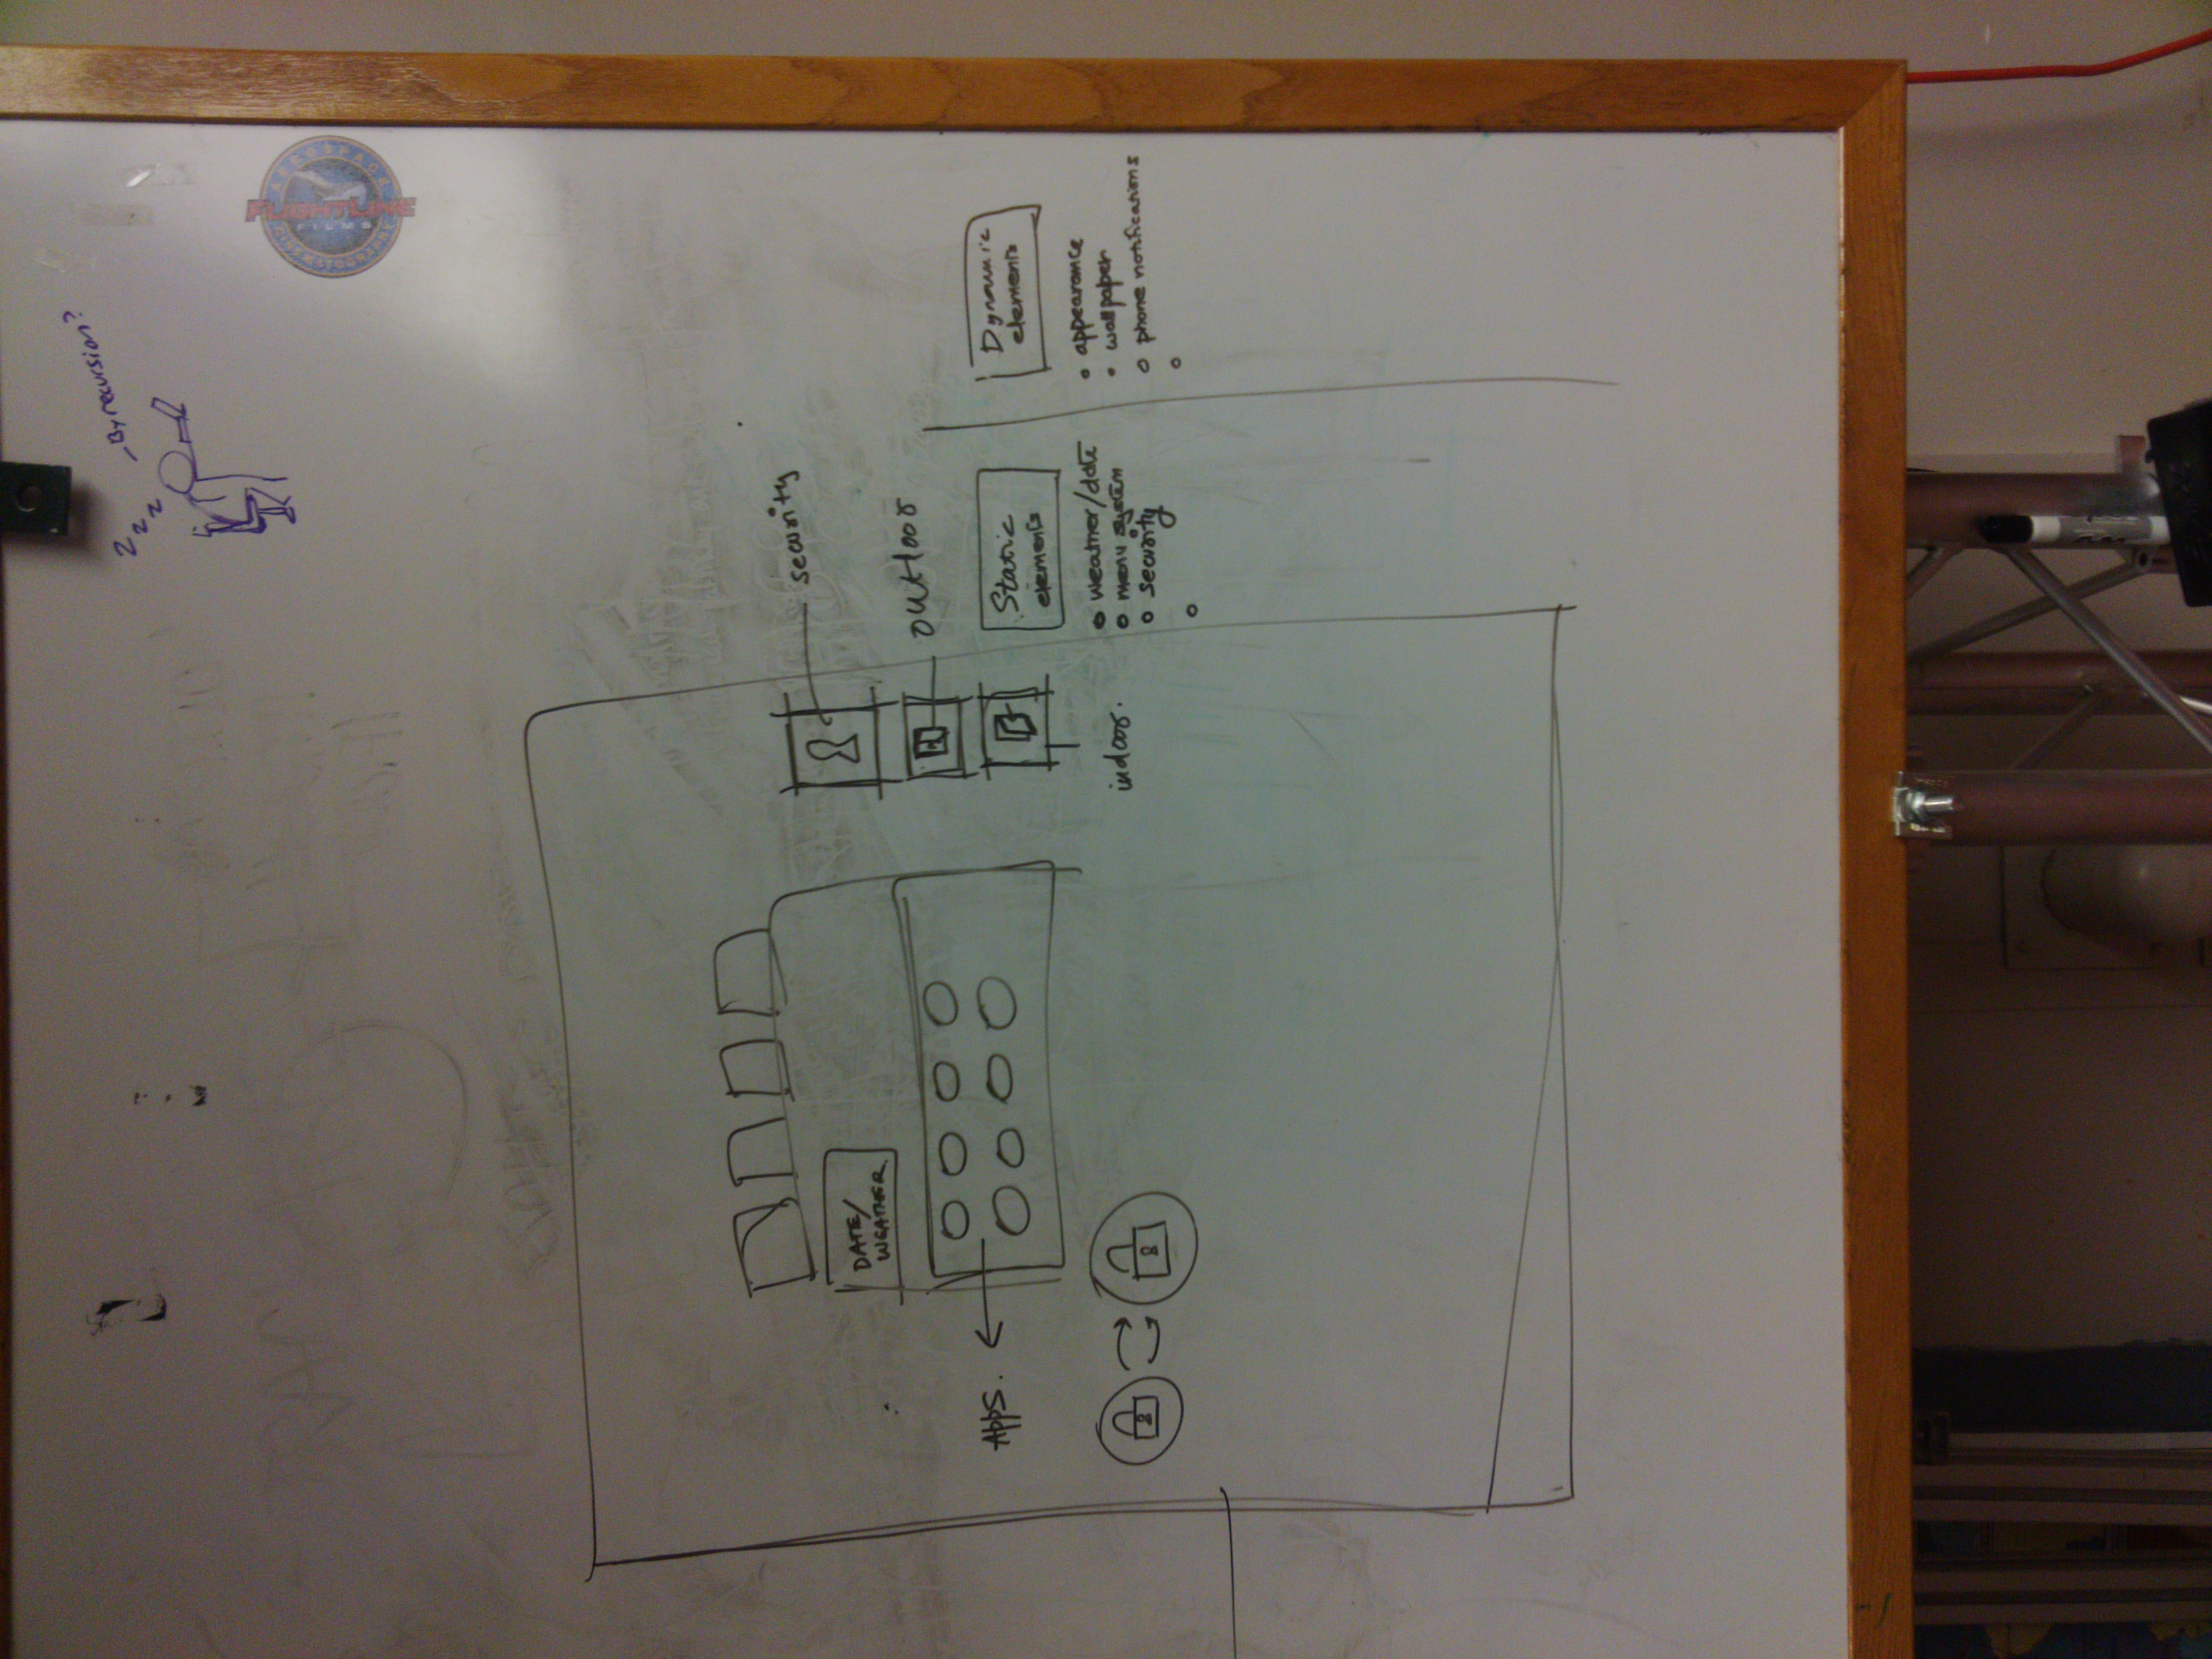 - By recursion?
z
z
z
FLIGHTLINE
FILMS
AEROSPACE
DATE/
WEATHER
Apps.
security
outdoor
indoor.
Static
elements
weather/date
menu system
security
Dynamic
elements
appearance
wallpaper
phone notifications